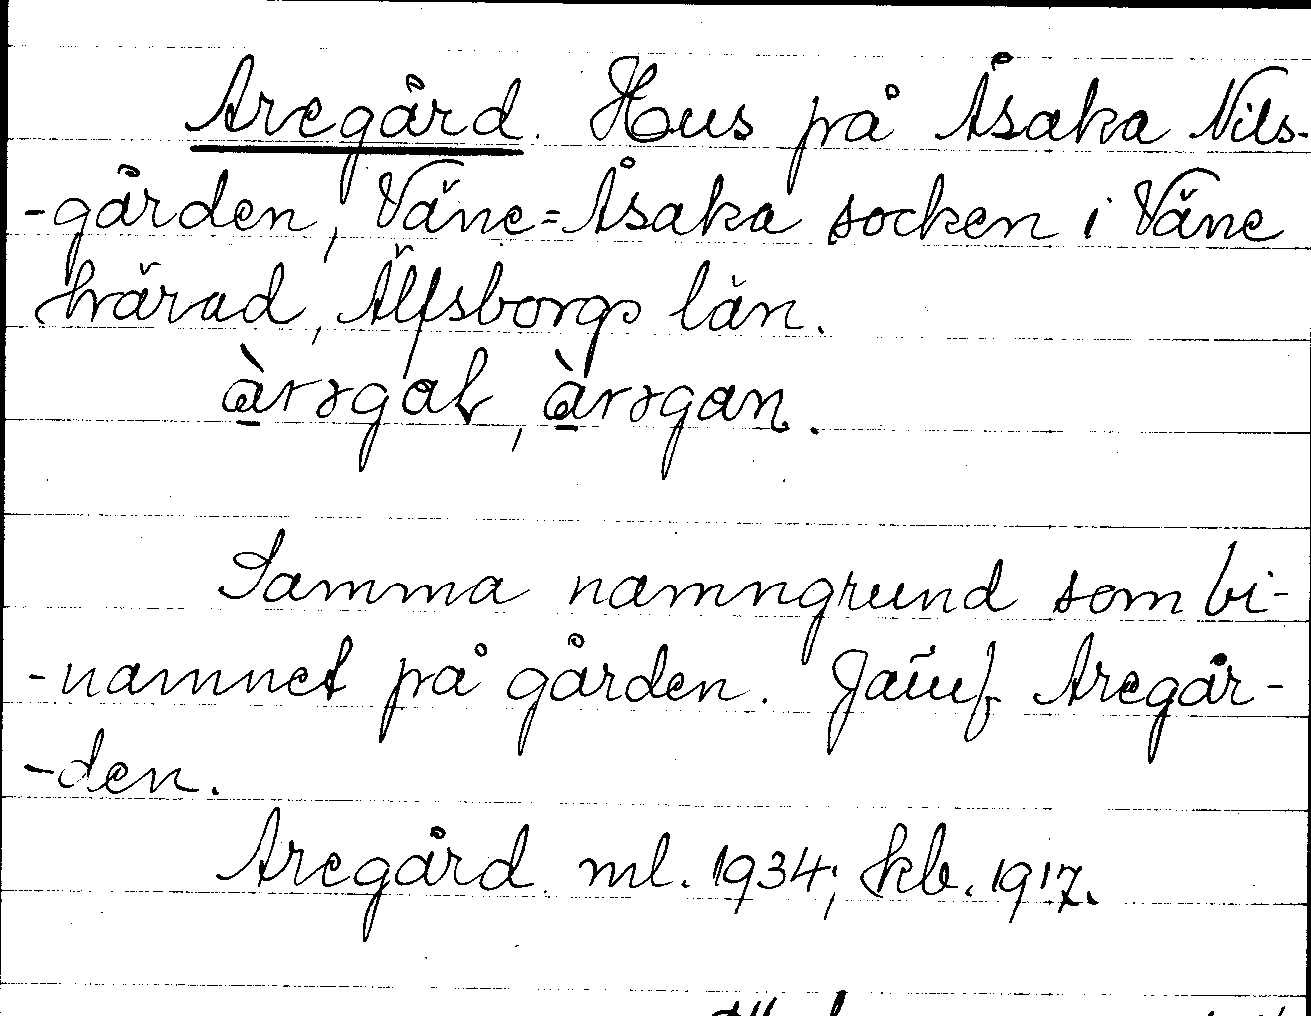 Aregård. Hus på Åsaka Nils-
-gården, Väne=Åsaka socken i Väne
härad, Älfsborgs län.
àrəgaƚ, àrəgan.
Samma namngrund som bi-
-namnet på gården. Jämf Aregår-
-den.
Aregård ml. 1934; kb. 1917.